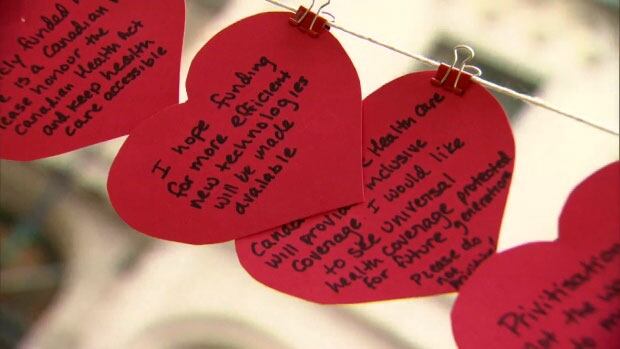 funded
is a Canadian
honour the
Canadian Health Act
and keep health
care accessible
I hope funding
for more efficient
new technologies
will be made
available
Health Care
inclusive
will provide
coverage I would like
to see universal
health coverage protected
for future generations
Please do
not
Privitisation
not the
to